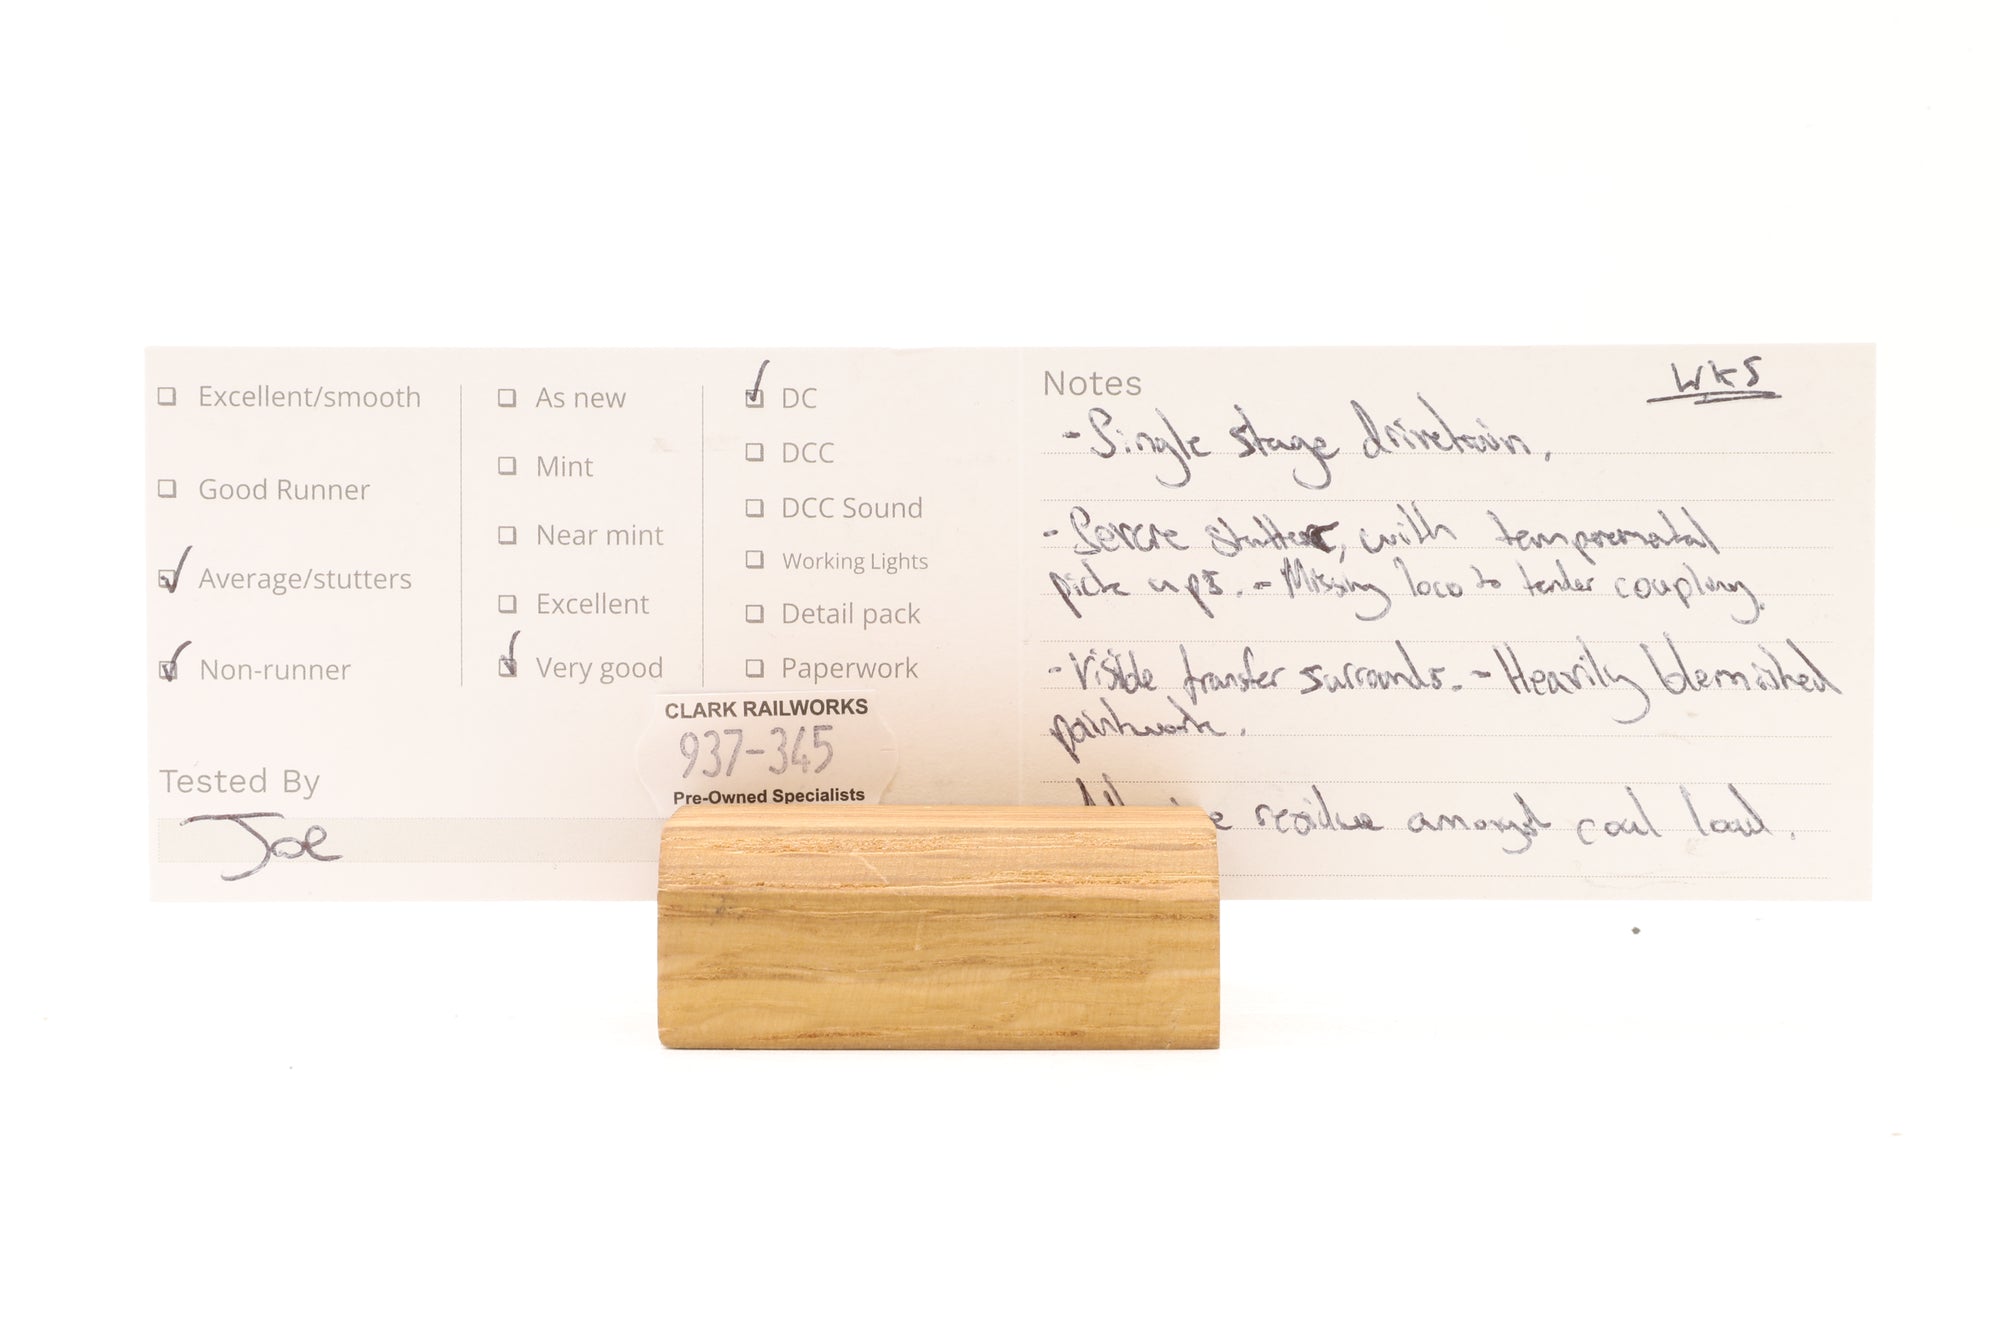 Excellent/smooth
Good Runner
Average/stutters
Non-runner
As new
Mint
Near mint
Excellent
Very good
DC
DCC
DCC Sound
Working Lights
Detail pack
Paperwork
CLARK RAILWORKS
937-345
Pre-Owned Specialists
Tested By
Joe
Notes
WKS
- Single stage drivetrain.
- Severe stutter, with
pick ups. - Missing loco to tender coupling.
- Visible transfer surrounds. - Heavily blemished
paintwork.
residue amongst coal load.